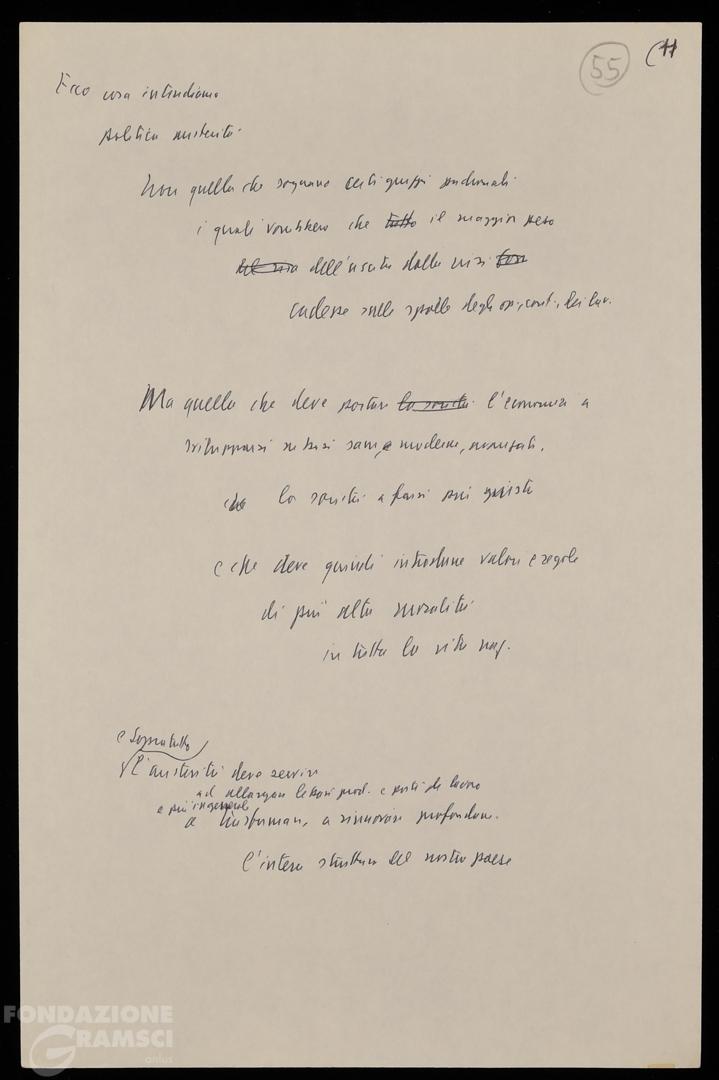 55
Ecco cosa intendiamo
politica austerità
Non quella che sognano certi gruppi padronali
i quali vorrebbero che tutto il maggior peso
dell'uscita dalla crisi
cadesse sulle spalle degli op., cont., dei lav.
Ma quella che deve portare la società l'economia a
svilupparsi su basi sane e moderne,
che la società a farsi più giusta
e che deve quindi introdurre valori e regole
di più alta moralità
in tutta la vita naz.
e Sopratutto
l'austerità deve servire
ad allargare le basi prod. e posti di lavoro
e più in generale
a trasformare, a rinnovare profondam.
l'intera struttura del nostro paese
FONDAZIONE
GRAMSCI
onlus